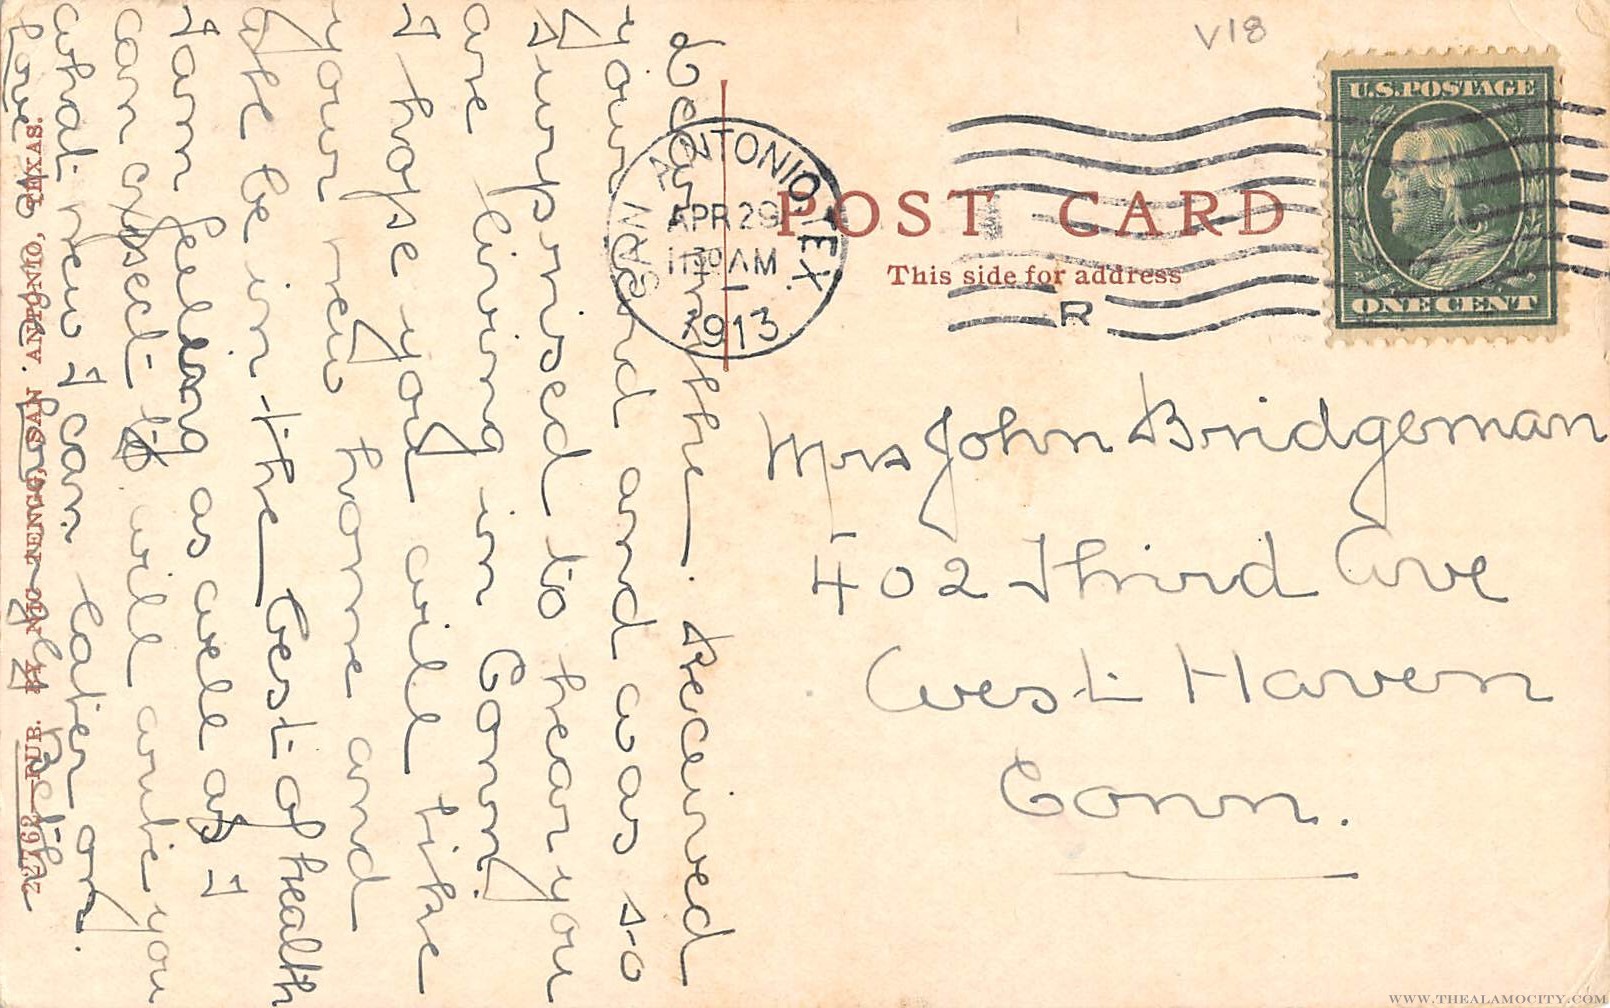 V18
U.S. POSTAGE
ONE CENT
SAN ANTONIO, TEX.
APR 29
11 30 AM
1913
R
POST CARD
This side for address
Mrs John Bridgeman
402 Third Ave
West Haven
Conn.
Dear the. Received
your card and was so
surprised to hear you
are living in Conn.
I hope you will like
your new home and
be in the best of health
I am feeling as well as I
can expect will write you
what new I can later on.
Love
22192—PUB. BY NIC TENGG, SAN ANTONIO, TEXAS.
WWW.THEALAMOCITY.COM